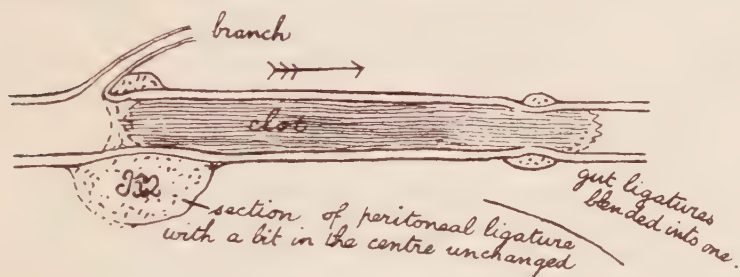 branch
clot
section of peritoneal ligature
with a bit in the centre unchanged
gut ligatures
blended into one.